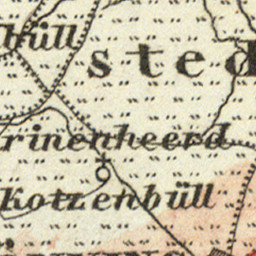 büll
sted
rinenheerd
Kotzenbüll